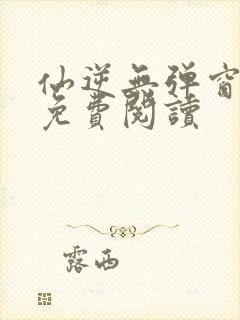 仙逆無弹窗
免費閱讀
露西